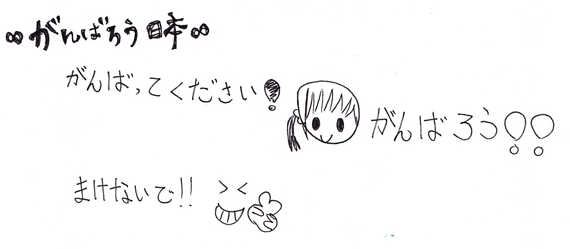 ∞がんばろう日本∞
がんばってください!
がんばろう!!
まけないで!!